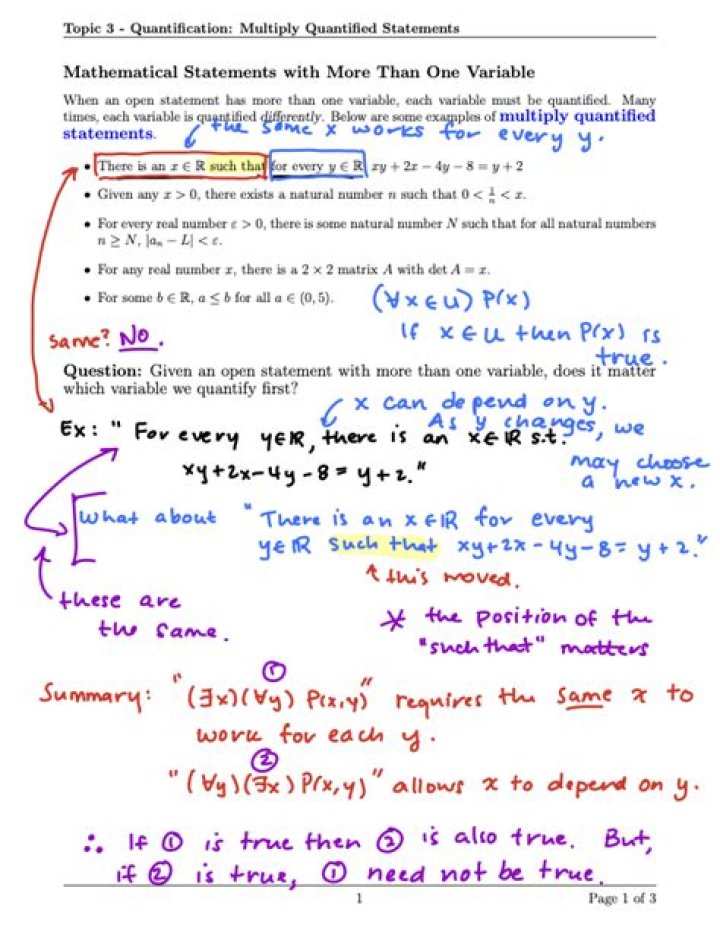 Topic 3 - Quantification: Multiply Quantified Statements
Mathematical Statements with More Than One Variable
When an open statement has more than one variable, each variable must be quantified. Many
times, each variable is quantified differently. Below are some examples of multiply quantified
statements.
the same x works for every y.
• There is an x ∈ ℝ such that for every y ∈ ℝ, xy + 2x − 4y − 8 = y + 2
• Given any x > 0, there exists a natural number n such that 0 < 1/n < x.
• For every real number ε > 0, there is some natural number N such that for all natural numbers
n ≥ N, |aₙ − L| < ε.
• For any real number x, there is a 2 × 2 matrix A with det A = x.
• For some b ∈ ℝ, a ≤ b for all a ∈ (0, 5).
(∀x∈U) P(x)
If x ∈ U then P(x) is
true.
same? No.
Question: Given an open statement with more than one variable, does it matter
which variable we quantify first?
x can depend on y.
As y changes, we
may choose
a new x.
Ex: " For every y∈ℝ, there is an x∈ℝ s.t.
xy+2x−4y−8 = y+2."
What about "There is an x∈ℝ for every
y∈ℝ such that xy+2x−4y−8= y+2."
↑ this moved.
these are
the same.
* the position of the
"such that" matters
①
Summary: "(∃x)(∀y) P(x,y)" requires the same x to
work for each y.
②
"(∀y)(∃x) P(x,y)" allows x to depend on y.
∴ If ① is true then ② is also true. But,
if ② is true, ① need not be true.
1
Page 1 of 3